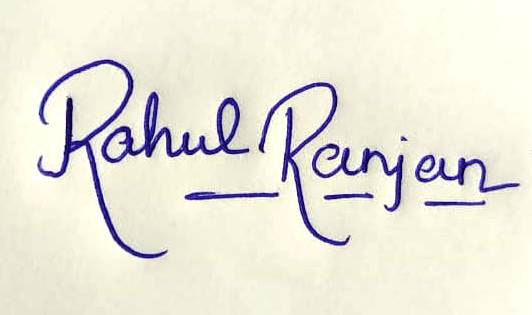 Rahul Ranjan